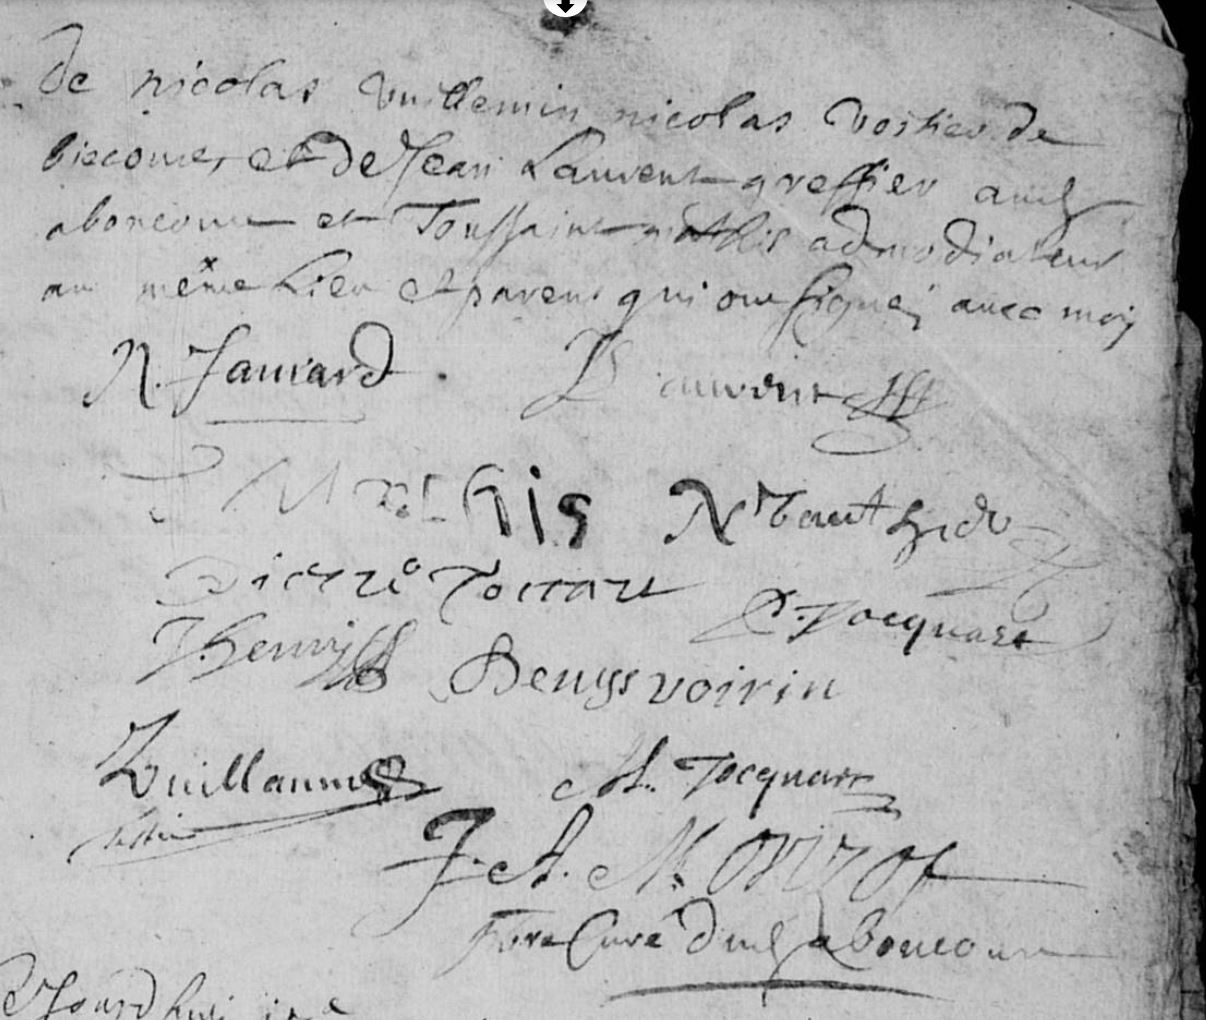 de nicolas Vuillemin nicolas Vosties de
biecoure et de Jean Laurent greffier aud
aboncour et Toussaint mathis admodiateur
au même Lieu et parens qui ont signé avec moy
N. Janiard Laurent
Mathis N
Pierre Toccart P. Jocquart
J. henry Denyss voirin
Vuillaume M. Jocquart
J. A. M
Curé dud aboncour